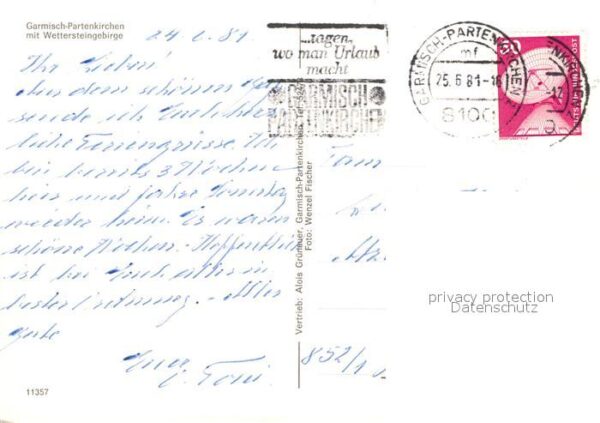 Garmisch-Partenkirchen
mit Wettersteingebirge
24.6.81
Ihr Lieben!
Aus dem schönen
sende ich Euch herz
liche Feriengrüsse. Ich
bin bereits 3 Wochen
hier und fahre Sonntag
wieder heim. Es waren
schöne Wochen. Hoffentlich
ist bei Euch alles in
bester Ordnung. Alles
Gute
Eure
Toni
11357
Vertrieb: Alois Grüneuer, Garmisch-Partenkirchen
Foto: Wenzel Fischer
...sagen,
wo man Urlaub
macht
GARMISCH
PARTENKIRCHEN
GARMISCH-PARTENKIRCHEN
mf
25.6.81-16
8100
50
852/1
privacy protection
Datenschutz